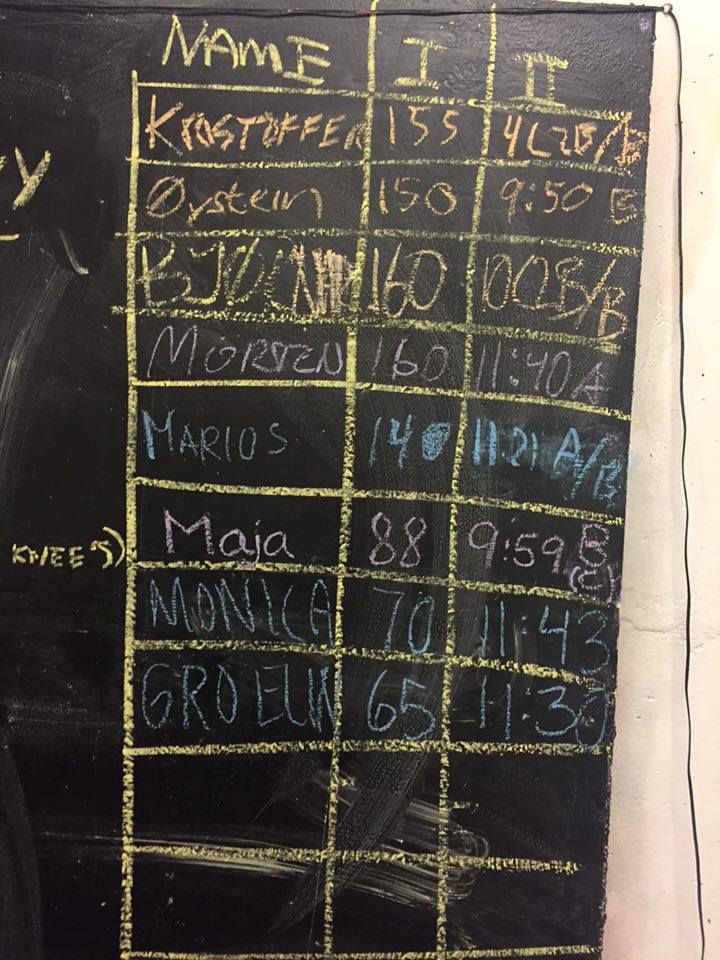 NAME I II
KRISTOFFER 155
Y
Øystein 150 9:50 B
160
MORTEN 160 11:40 A
MARIOS 140 11:21 A/B
KNEE'S) Maja 88 9:59 B
MONICA 70 11:43
65 11:30